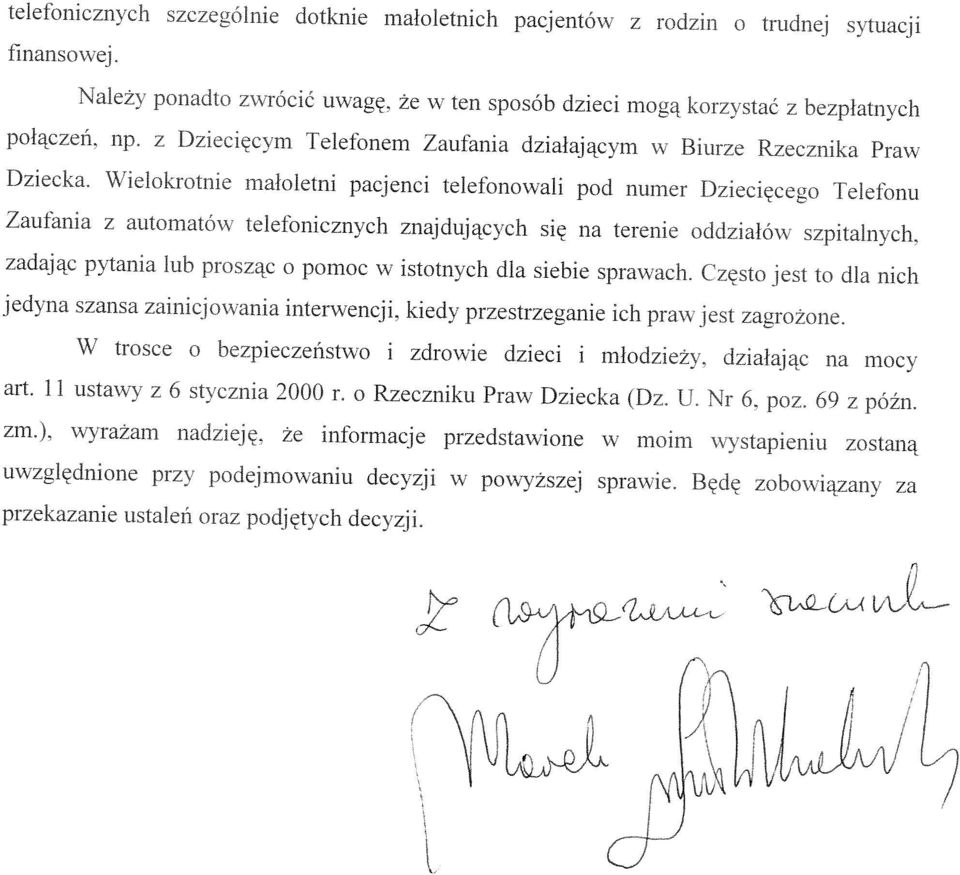 telefonicznych szczególnie dotknie małoletnich pacjentów z rodzin o trudnej sytuacji
finansowej.
Należy ponadto zwrócić uwagę, że w ten sposób dzieci mogą korzystać z bezpłatnych
połączeń, np. z Dziecięcym Telefonem Zaufania działającym w Biurze Rzecznika Praw
Dziecka. Wielokrotnie małoletni pacjenci telefonowali pod numer Dziecięcego Telefonu
Zaufania z automatów telefonicznych znajdujących się na terenie oddziałów szpitalnych,
zadając pytania lub prosząc o pomoc w istotnych dla siebie sprawach. Często jest to dla nich
jedyna szansa zainicjowania interwencji, kiedy przestrzeganie ich praw jest zagrożone.
W trosce o bezpieczeństwo i zdrowie dzieci i młodzieży, działając na mocy
art. 11 ustawy z 6 stycznia 2000 r. o Rzeczniku Praw Dziecka (Dz. U. Nr 6, poz. 69 z późn.
zm.), wyrażam nadzieję, że informacje przedstawione w moim wystapieniu zostaną
uwzględnione przy podejmowaniu decyzji w powyższej sprawie. Będę zobowiązany za
przekazanie ustaleń oraz podjętych decyzji.
Z wyrazami szacunku
Marek